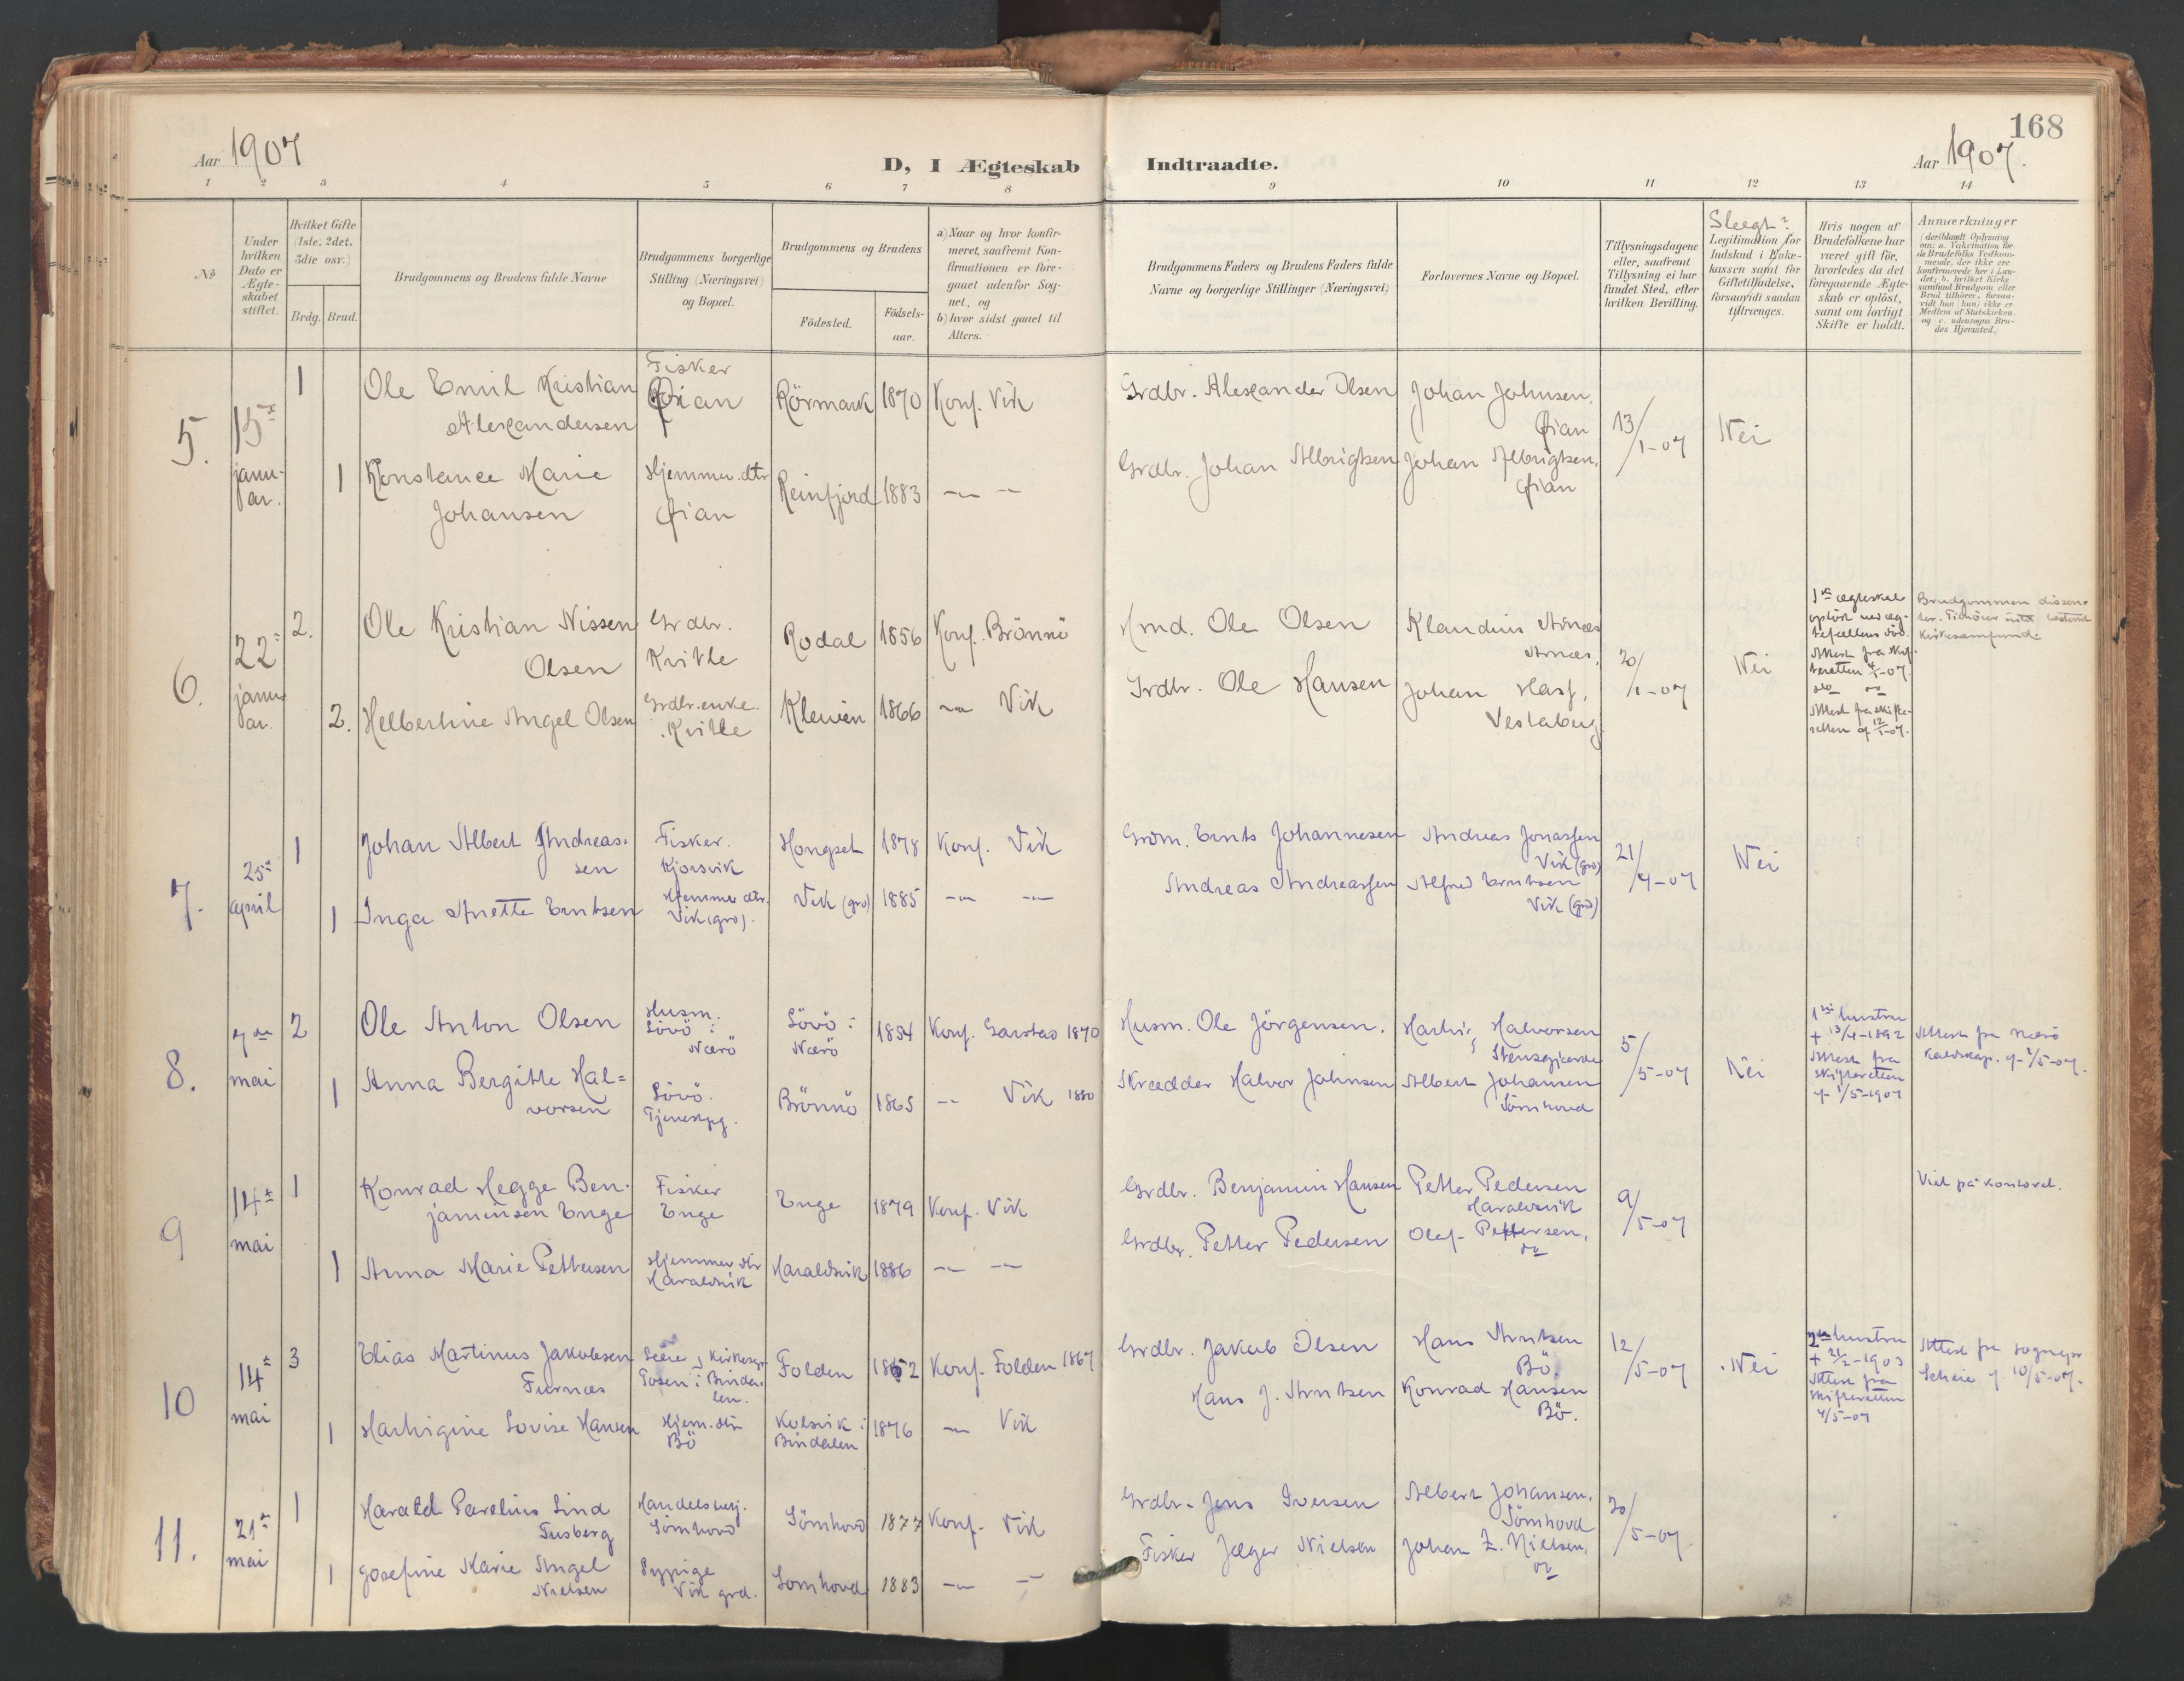 168
Aar 1907
D, I Ægteskab Indtraadte.
Aar 1907.
1 2 3 4 5 6 7 8 9 10 11 12 13 14
No
Under hvilken Dato er Ægteskabet stiftet.
Hvilket Gifte (1ste, 2det, 3die osv.)
Brdg. Brud.
Brudgommens og Brudens fulde Navne
Brudgommens borgerlige Stilling (Næringsvei) og Bopæl.
Brudgommens og Brudens
Födested.
Födselsaar.
a) Naar og hvor konfirmeret, saafremt Konfirmationen er foregaaet udenfor Sognet, og
b) hvor sidst gaaet til Alters.
Brudgommens Faders og Brudens Faders fulde Navne og borgerlige Stillinger (Næringsvei)
Forlovernes Navne og Bopæl.
Tillysningsdagene eller, saafremt Tillysning ei har fundet Sted, efter hvilken Bevilling.
Slægt?
Legitimation for Indskud i Enkekassen samt for Giftetilladelse, forsaavidt saadan tiltrænges.
Hvis nogen af Brudefolkene har været gift för, hvorledes da det foregaaende Ægteskab er oplöst, samt om lovligt Skifte er holdt.
Anmærkninger
(deriblandt Oplysning om: a. Vakcination for de Brudefolks Vedkommende, der ikke ere konfirmerede her i Landet; b. hvilket Kirkesamfund Brudgom eller Brud tilhörer, forsaavidt han (hun) ikke er Medlem af Statskirken, og c. udensogns Brudes Hjemsted.)
5. 15de januar. 1 Ole Emil Kristian Alexandersen Fisker Øian Rörmark 1870 Konf. Vik Grdbr. Alexander Olsen Johan Johnsen, Øian 13/1-07 Nei
1 Konstance Marie Johansen Hjemmev. dtr Øian Reinfjord 1883 -"- -"- Grdbr. Johan Albrigtsen Johan Albrigtsen, Øian
6. 22de januar. 2. Ole Kristian Nissen Olsen Grdbr. Kvitle Rodal 1856 Konf. Brönnö Hmd. Ole Olsen Klaudius Arnæs Arnæs, 20/1-07 Nei
1ste ægteskab oplöst ved ægtefællens död. Attest fra skifteretten 4/1-07.
Brudgommen dissenter. Tilhörer intet bestemt kirkesamfund.
2. Helbertine Angel Olsen Grdbr. enke. Kvitle 1866 -"- Vik Grdbr. Ole Hansen Johan
do do Attest fra skifteretten af 12/1-07.
7. 25de april 1 Johan Albert Andreassen Fisker. Kjørsvik Hongset 1878 Konf. Vik Grdm. Ernts Johannesen Andreas Jonassen Vik (grd) 21/4-07 Nei
1 Inga Anette Erntsen Hjemmev dtr. Vik (grd). Vik (grd) 1885 -"- -"- Andreas Andreassen Alfred Erntsen Vik (grd)
8. 7de mai 2 Ole Anton Olsen Husm. Sövö i Nærö Sövö i Nærö 1854 Konf. Garstad 1870 Husm. Ole Jörgensen. Halvorsen 5/5-07 Nei
1ste hustru + 13/4-1892 Attest fra skifteretten af 1/5-1907
Attest fra Nærö af 2/5-07.
1 Anna Bergitte Halvorsen Sövö. Tjenestpg. Brönnö 1865 -"- Vik 1880 Skrædder Halvor Johnsen Albert Johansen Sömhovd
9 14de mai 1 Konrad Hegge Benjaminsen Enge Fisker Enge Enge 1879 Konf. Vik Grdbr. Benjamin Hansen Petter Pedersen Haraldsvik 9/5-07
Viet på kontoret.
1 Anna Marie Pettersen Hjemmev dtr Haraldsvik Haraldsvik 1886 -"- -"- Grdbr. Petter Pedersen Olaf Pettersen, do
10 14de mai 3 Elias Martinus Jakobsen Furnæs Lærer, Kirkesgr Tosen i Bindalen. Folden 1852 Konf. Folden 1867 Grdbr. Jakob Olsen Hans Arntsen Bö. 12/5-07 Nei
2den hustru + 21/2-1903 Attest fra skifteretten 4/5-07
Attest fra sognepr Scheie af 10/5-07.
1 Hartvigine Lovise Hansen Hjem. dtr Bö Kolsvik i Bindalen 1876 -"- Vik Hans J. Arntsen Konrad Hansen Bö.
11. 21de mai 1 Harald Parelius Lind Tusberg Handelsbetj. Sömhovd Sömhovd 1877 Konf. Vik Grdbr. Jens Iversen Albert Johansen, Sömhovd 20/5-07
1 Josefine Marie Angel Nielsen Sypige Vik grd. Somhovd 1883 -"- -"- Fisker Jæger Nielsen Johan Z. Nielsen, do